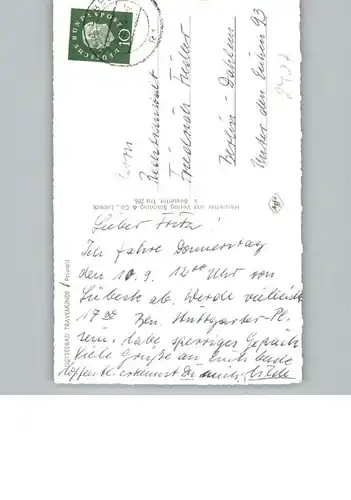 DEUTSCHE BUNDESPOST
10
Herrn
Rechtsanwalt
Friedrich Fiedler
Berlin-Dahlem
Unter den Eichen 93
Hersteller und Verlag Schöning & Co., Lübeck
OSTSEEBAD TRAVEMÜNDE / Priwall
Lieber Fritz!
Ich fahre Donnerstag
den 10.9. 12 00 Uhr von
Lübeck ab. Werde vielleicht
17 00 Bln. Stuttgarter-Pl.
sein. Habe sperriges Gepäck
Viele Grüße an Euch beide
Hoffentl. erkennst Du mich, Hilde